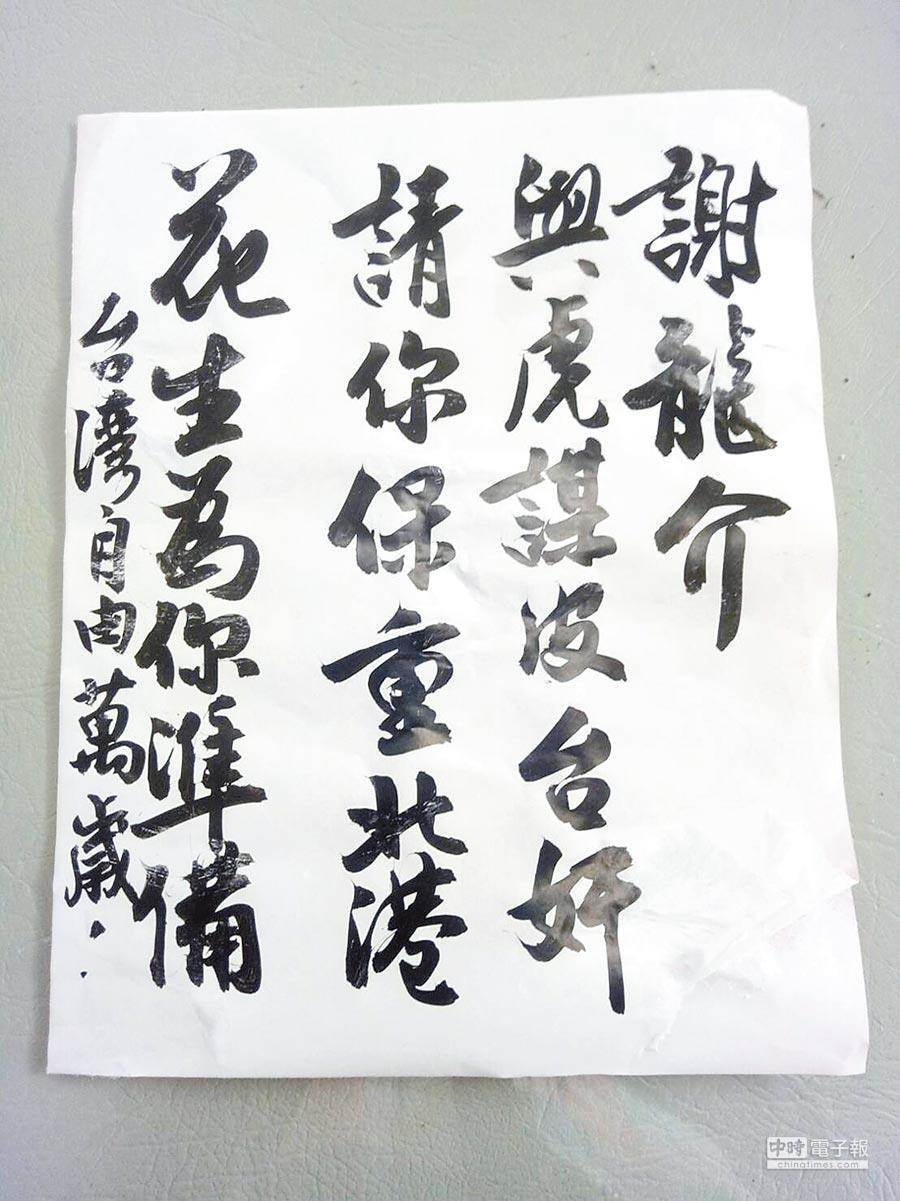 謝龍介
與虎謀皮台奸
請你保重北港
花生為你準備
台灣自由萬歲..
中時電子報
chinatimes.com